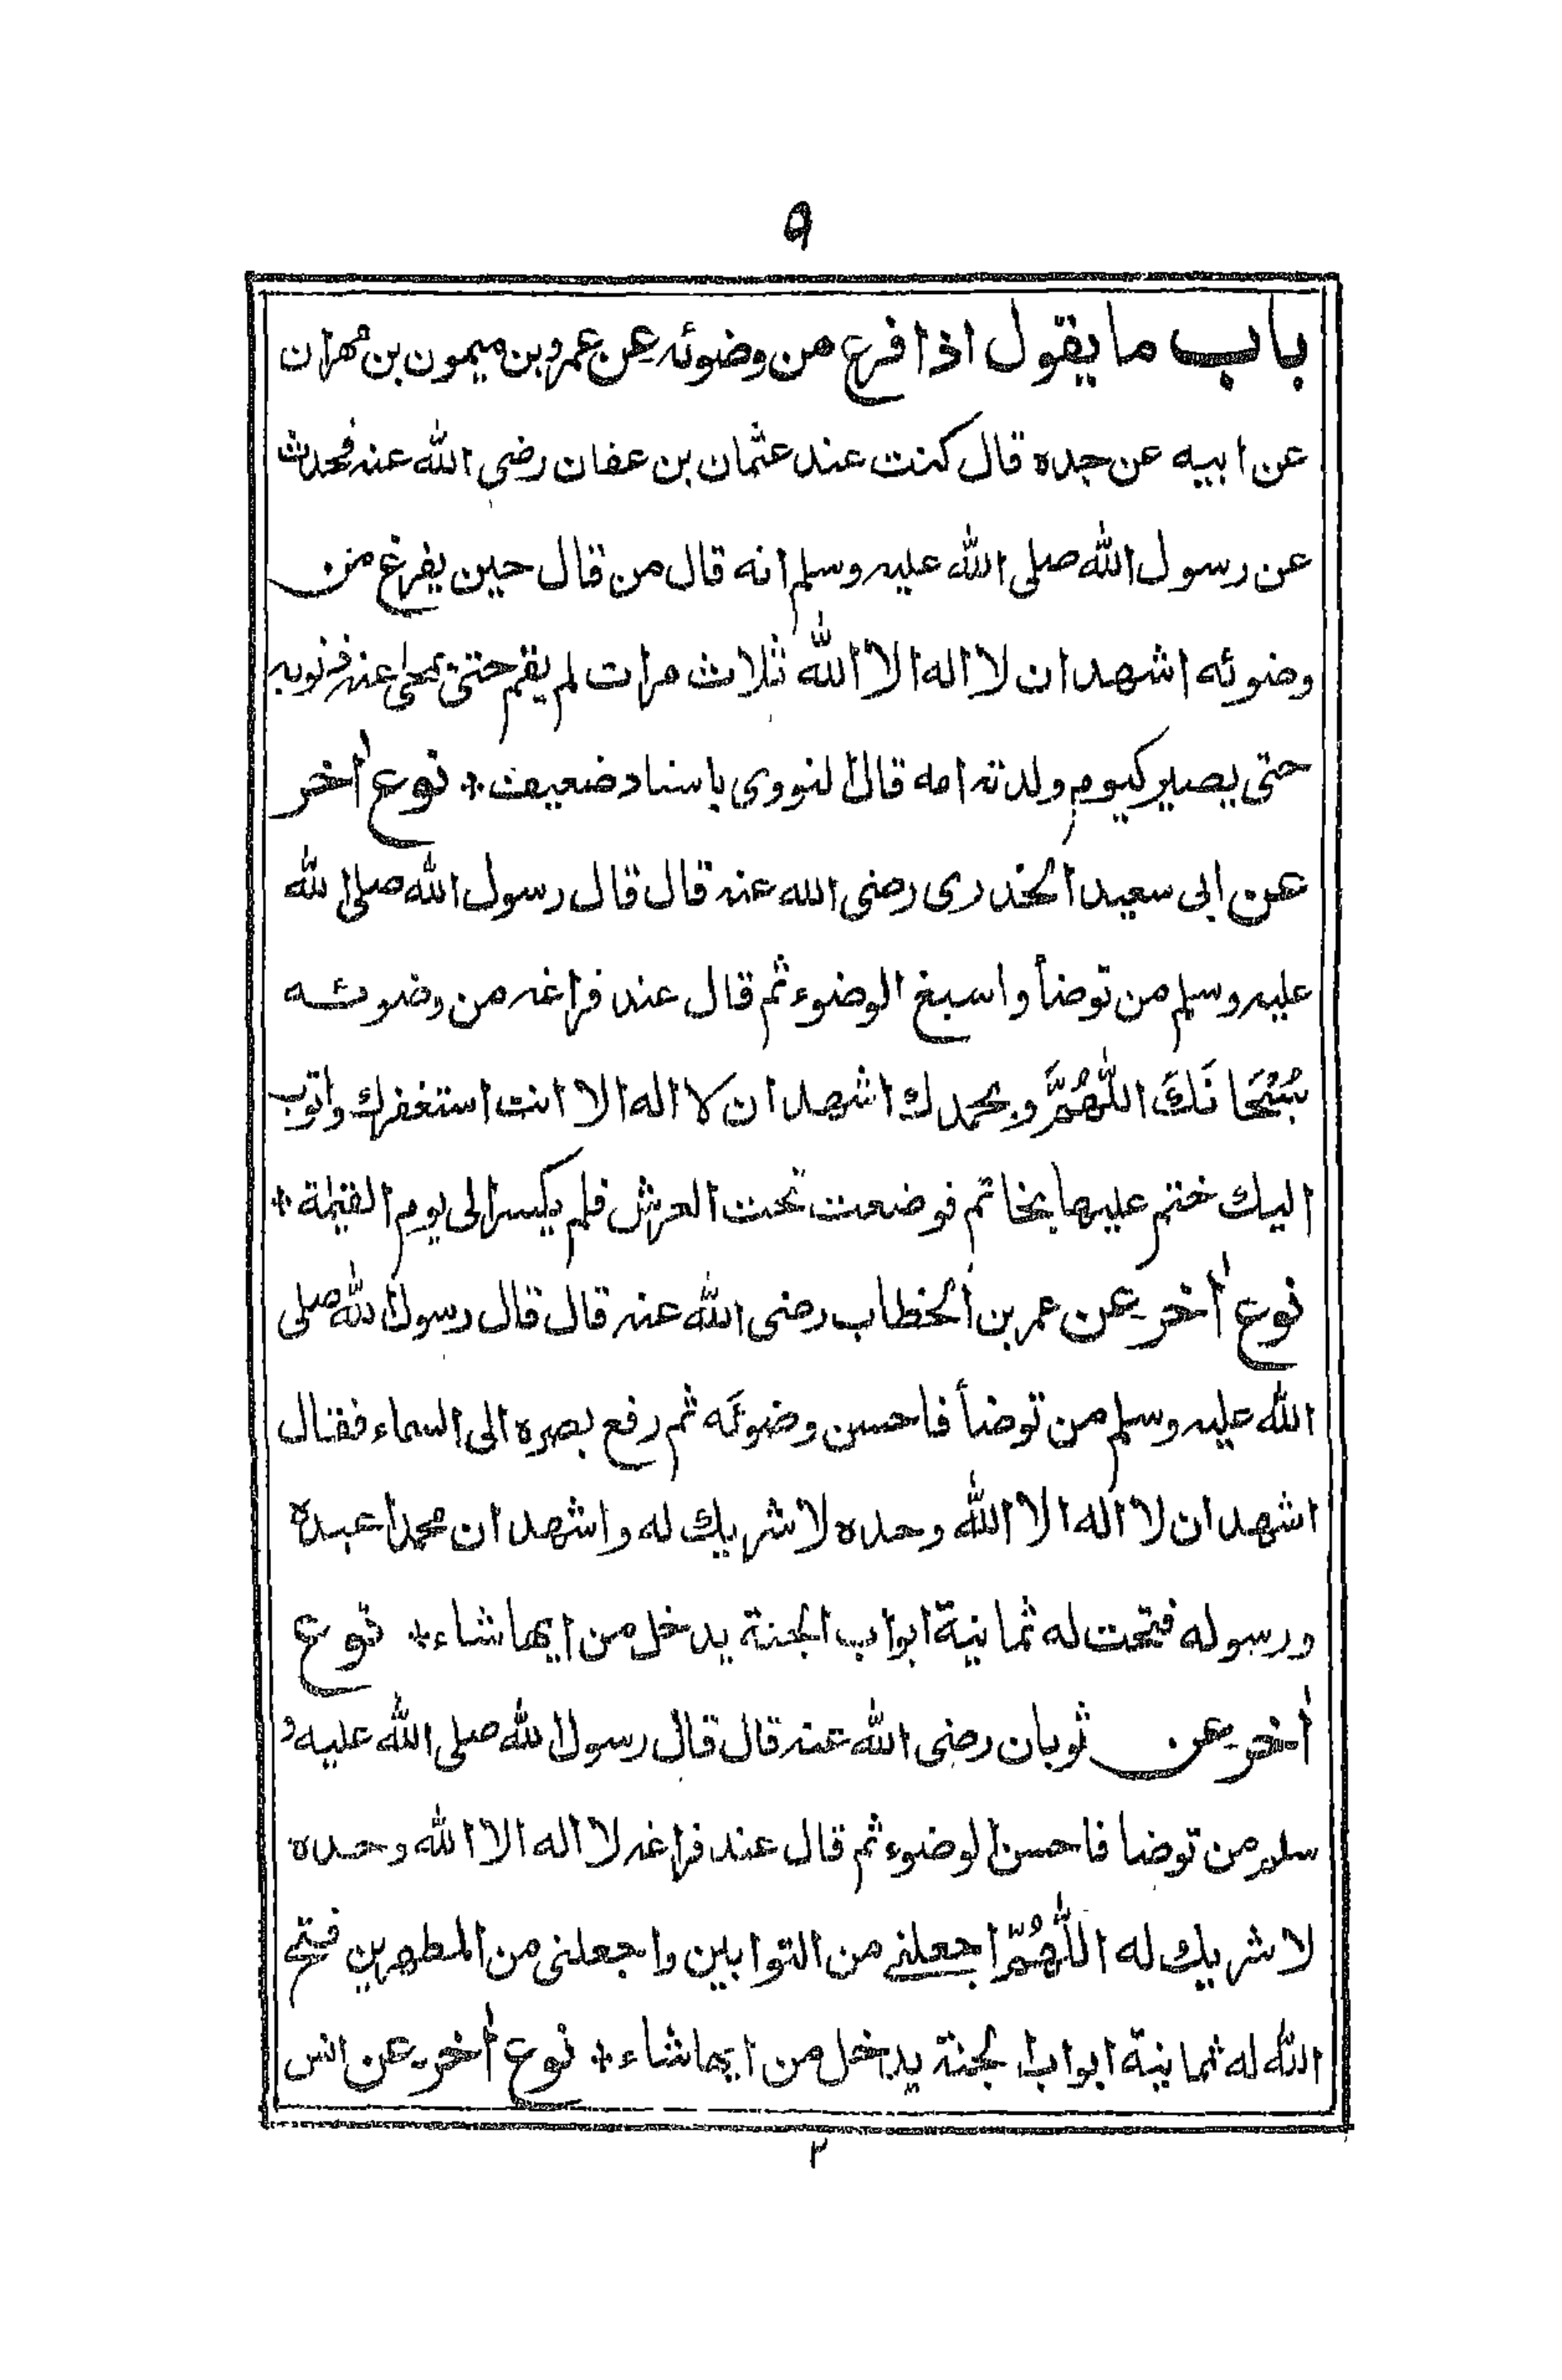 ٩
باب ما يقول اذا فرغ من وضوئه عن عمرو بن ميمون بن مهران
عن ابيه عن جده قال كنت عند عثمان بن عفان رضى الله عنه فحدث
عن رسول الله صلى الله عليه وسلم انه قال من قال حين يفرغ من
وضوئه اشهد ان لا اله الا الله ثلاث مرات لم يقم حتى تمحى عنه ذنوبه
حتى يصير كيوم ولدته امه قال النووى باسناد ضعيف * نوع أخر
عن ابى سعيد الخدرى رضى الله عنه قال قال رسول الله صلى الله
عليه وسلم من توضأ واسبغ الوضوء ثم قال عند فراغه من وضوئه
سُبْحَانَكَ اللّٰهُمَّ وبحمدك اشهد ان لا اله الا انت استغفرك واتوب
اليك ختم عليها بخاتم فوضعت تحت العرش فلم يكسر الى يوم القيمة *
نوع أخر عن عمر بن الخطاب رضى الله عنه قال قال رسول الله صلى
الله عليه وسلم من توضأ فاحسن وضوئه ثم رفع بصره الى السماء فقال
اشهد ان لا اله الا الله وحده لا شريك له واشهد ان محمدا عبده
ورسوله فتحت له ثمانية ابواب الجنة يدخل من ايها شاء * نوع
أخر عن ثوبان رضى الله عنه قال قال رسول الله صلى الله عليه و
سلم من توضا فاحسن الوضوء ثم قال عند فراغه لا اله الا الله وحده
لا شريك له اللّٰهُمّ اجعلنى من التوابين واجعلنى من المطهرين فتح
الله له ثمانية ابواب الجنة يدخل من ايها شاء * نوع أخر عن انس
٢